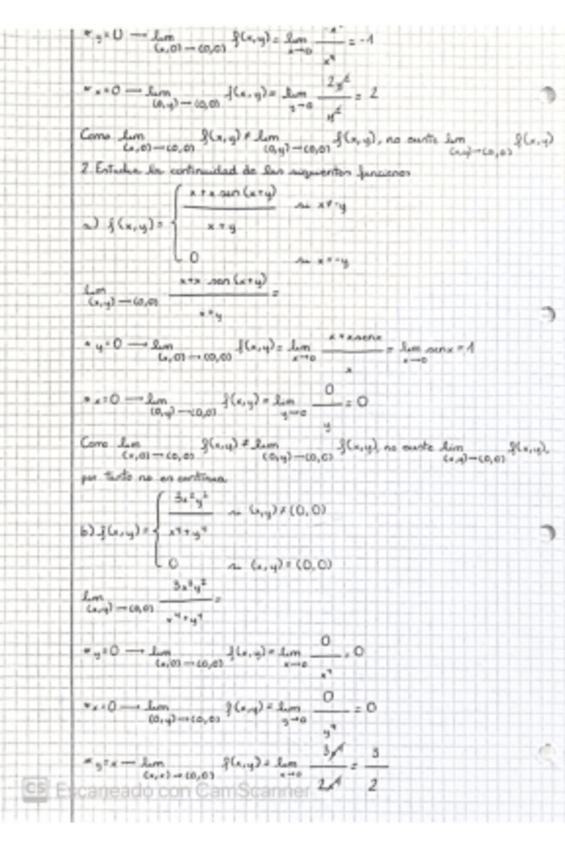 * y=0 → lim (x,0)→(0,0) f(x,y) = lim x→0 /x⁴ = -1
* x=0 → lim (0,y)→(0,0) f(x,y) = lim y→0 2y²/y² = 2
Como lim (x,0)→(0,0) f(x,y) ≠ lim (0,y)→(0,0) f(x,y), no existe lim (x,y)→(0,0) f(x,y)
2. Estudia la continuidad de las siguientes funciones
a) f(x,y) = { x+x sen(x+y) / x+y si x≠-y
0 si x=-y
lim (x,y)→(0,0) x+x sen(x+y) / x+y =
* y=0 → lim (x,0)→(0,0) f(x,y) = lim x→0 x+x senx / x = lim x→0 senx = 1
* x=0 → lim (0,y)→(0,0) f(x,y) = lim y→0 0/y = 0
Como lim (x,0)→(0,0) f(x,y) ≠ lim (0,y)→(0,0) f(x,y), no existe lim (x,y)→(0,0) f(x,y),
por tanto no es continua
b) f(x,y) = { 3x²y² / x⁴+y⁴ si (x,y)≠(0,0)
0 si (x,y)=(0,0)
lim (x,y)→(0,0) 3x²y² / x⁴+y⁴ =
* y=0 → lim (x,0)→(0,0) f(x,y) = lim x→0 0/x⁴ = 0
* x=0 → lim (0,y)→(0,0) f(x,y) = lim y→0 0/y⁴ = 0
* y=x → lim (x,x)→(0,0) f(x,y) = lim x→0 3x⁴/2x⁴ = 3/2
CS Escaneado con CamScanner